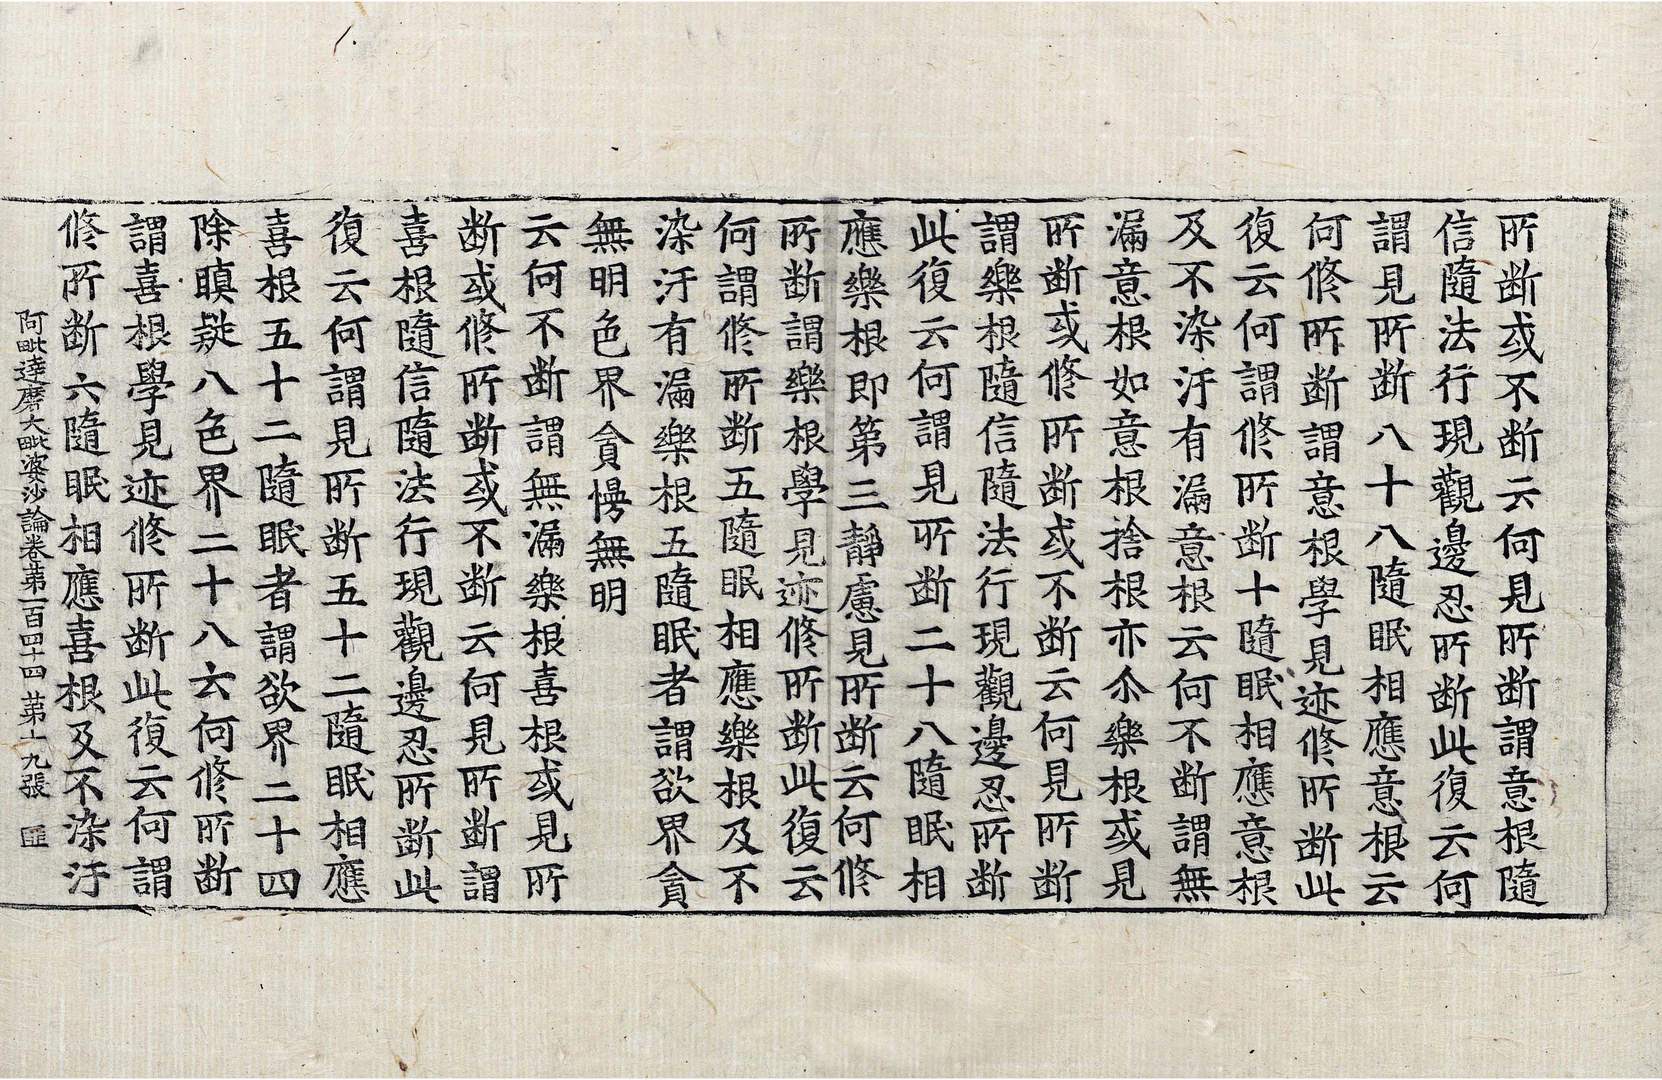 所断或不断云何見所断謂意根隨
信隨法行現觀邊忍所断此復云何
謂見所断八十八隨眠相應意根云
何修所断謂意根學見迹修所断此
復云何謂修所断十隨眠相應意根
及不染汙有漏意根云何不断謂無
漏意根如意根捨根亦尒樂根或見
所断或修所断或不断云何見所断
謂樂根隨信隨法行現觀邊忍所断
此復云何謂見所断二十八隨眠相
應樂根即第三靜慮見所断云何修
所断謂樂根學見迹修所断此復云
何謂修所断五隨眠相應樂根及不
染汙有漏樂根五隨眠者謂欲界貪
無明色界貪慢無明
云何不断謂無漏樂根喜根或見所
断或修所断或不断云何見所断謂
喜根隨信隨法行現觀邊忍所断此
復云何謂見所断五十二隨眠相應
喜根五十二隨眠者謂欲界二十四
除瞋疑八色界二十八云何修所断
謂喜根學見迹修所断此復云何謂
修所断六隨眠相應喜根及不染汙
阿毗達磨大毗婆沙論卷第一百四十四 第十九張 匪